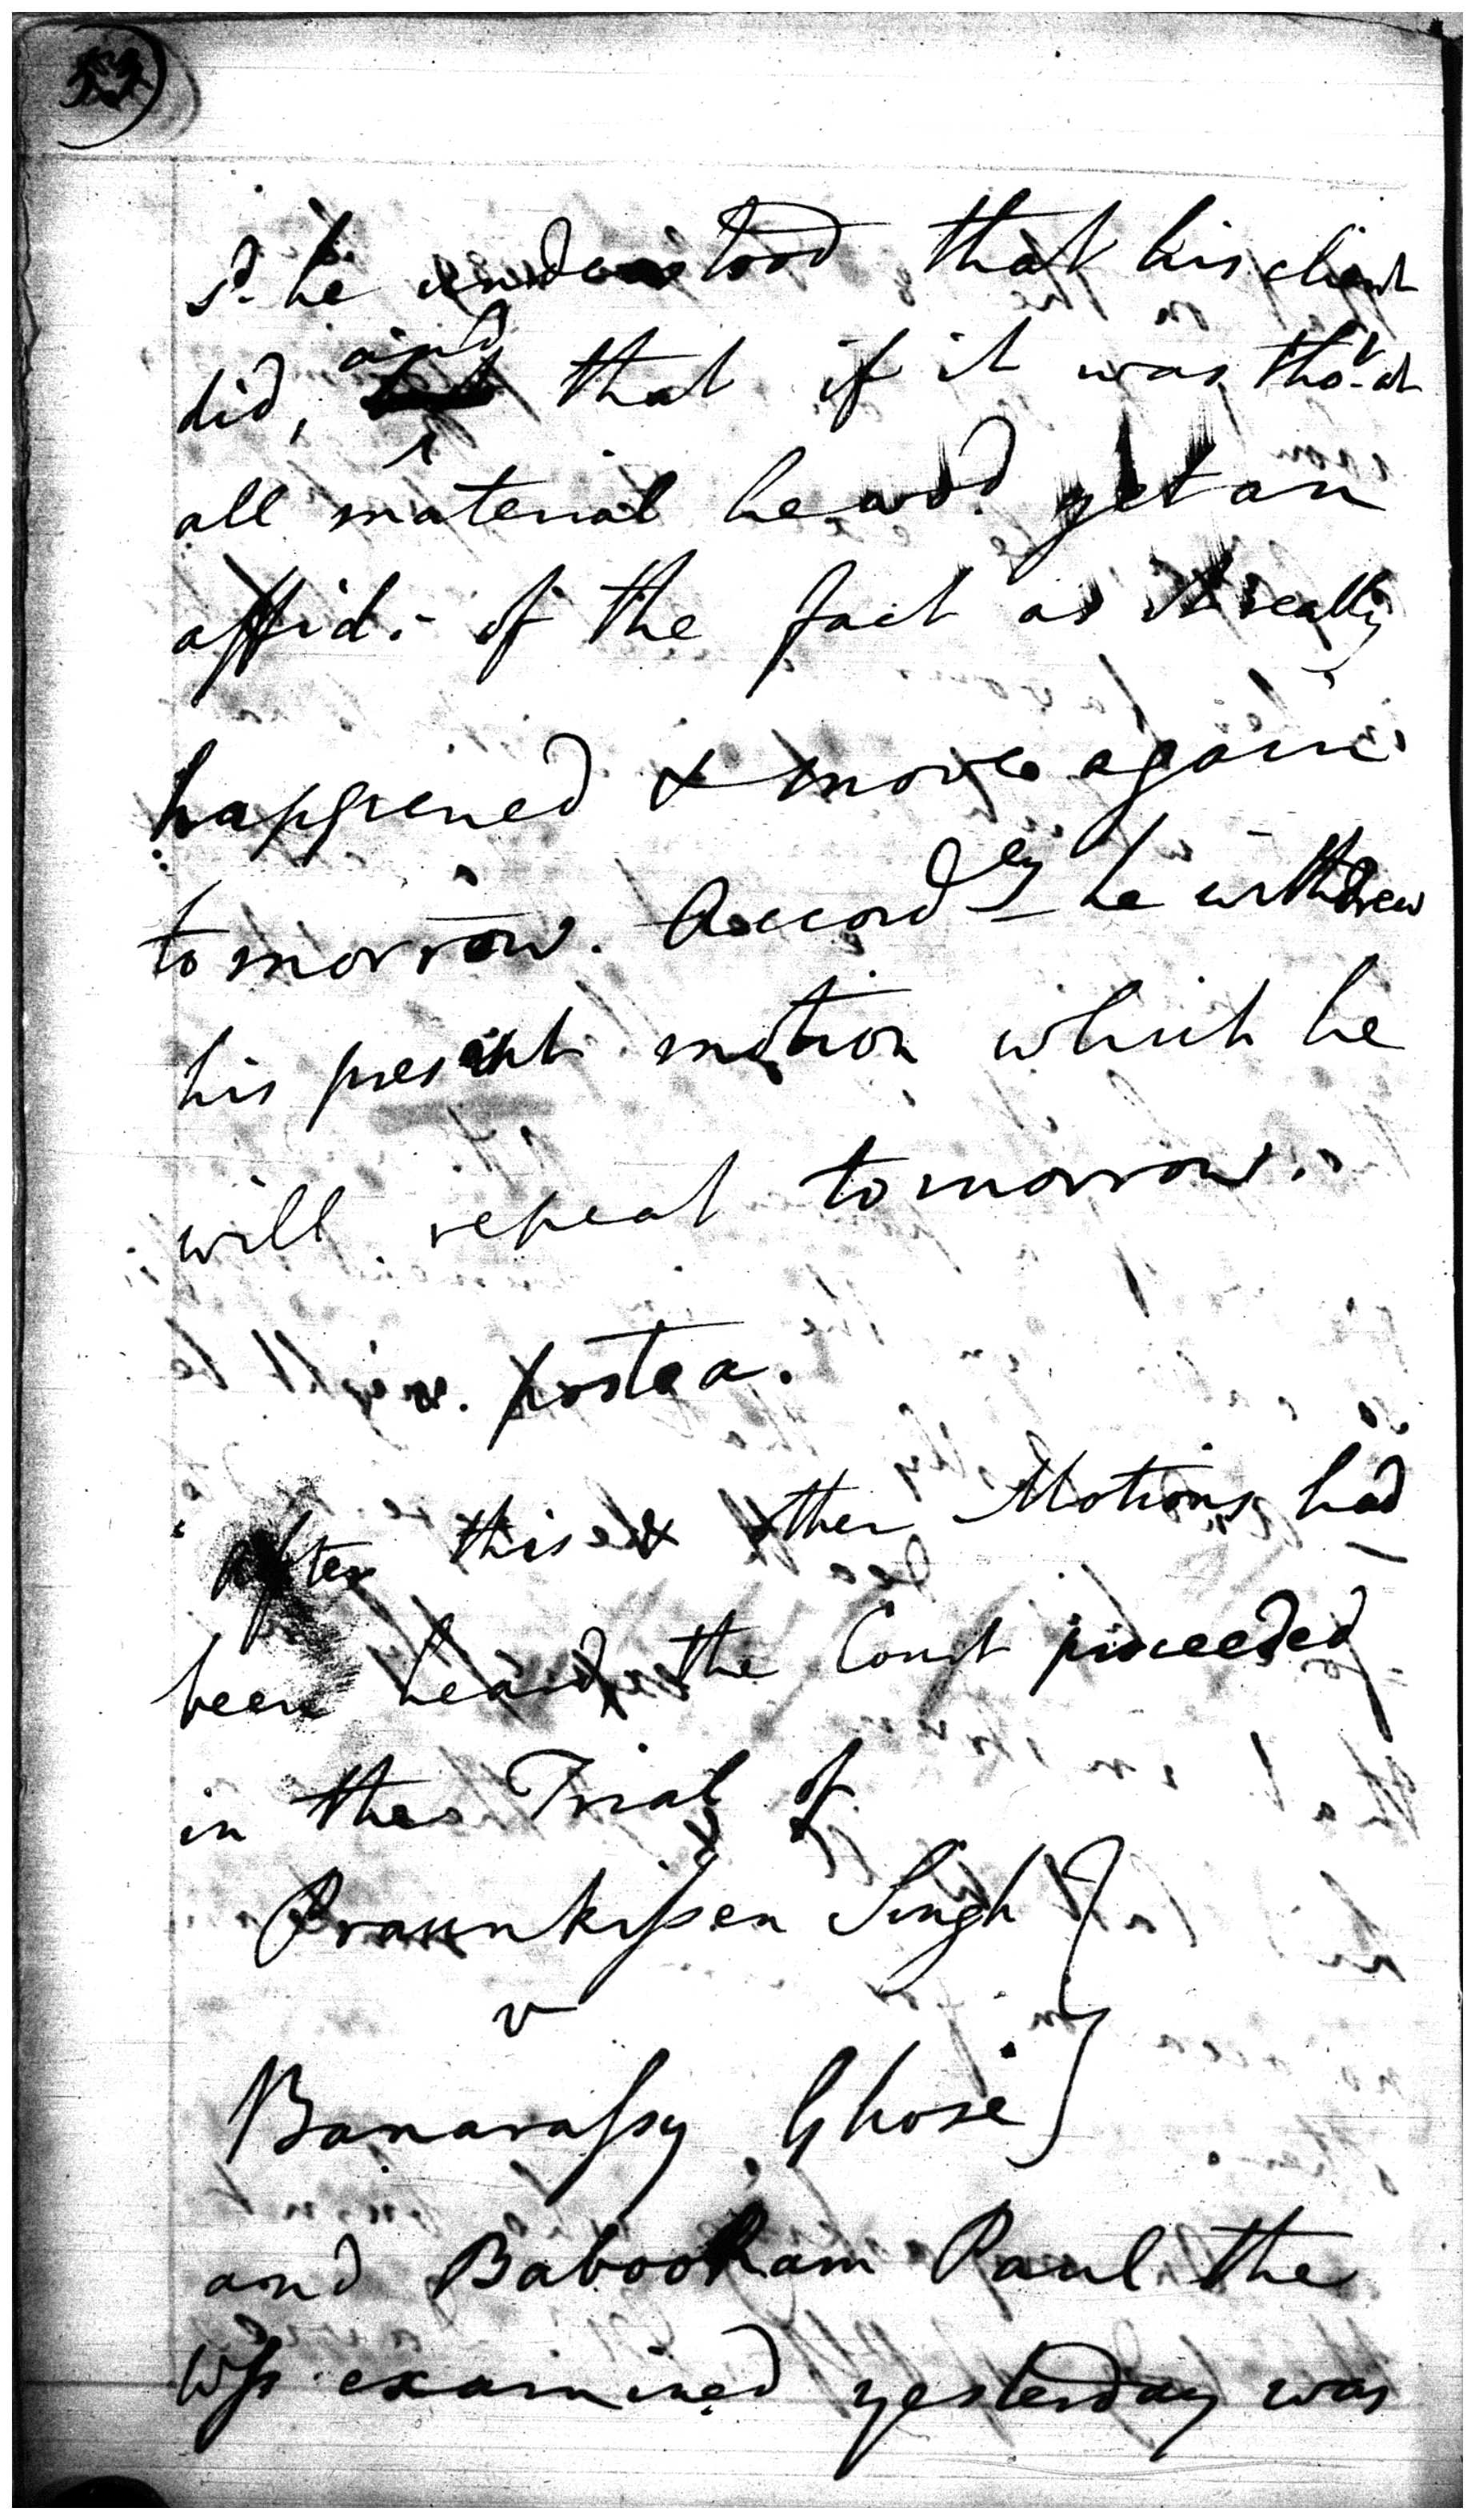 sd. he understood that his client
did, and that if it was tho't at
all material he wod. get an
affid: of the fact as it really
happened & move again
tomorrow. Accordly he withdrew
his present motion which he
will repeat tomorrow.
v. postea.
after this & other Motions had
been heard the Court proceeded
in the Trial of
Praunkissen Singh
v
Banarassy Ghose
and Babooram Paul the
Wss examined yesterday was